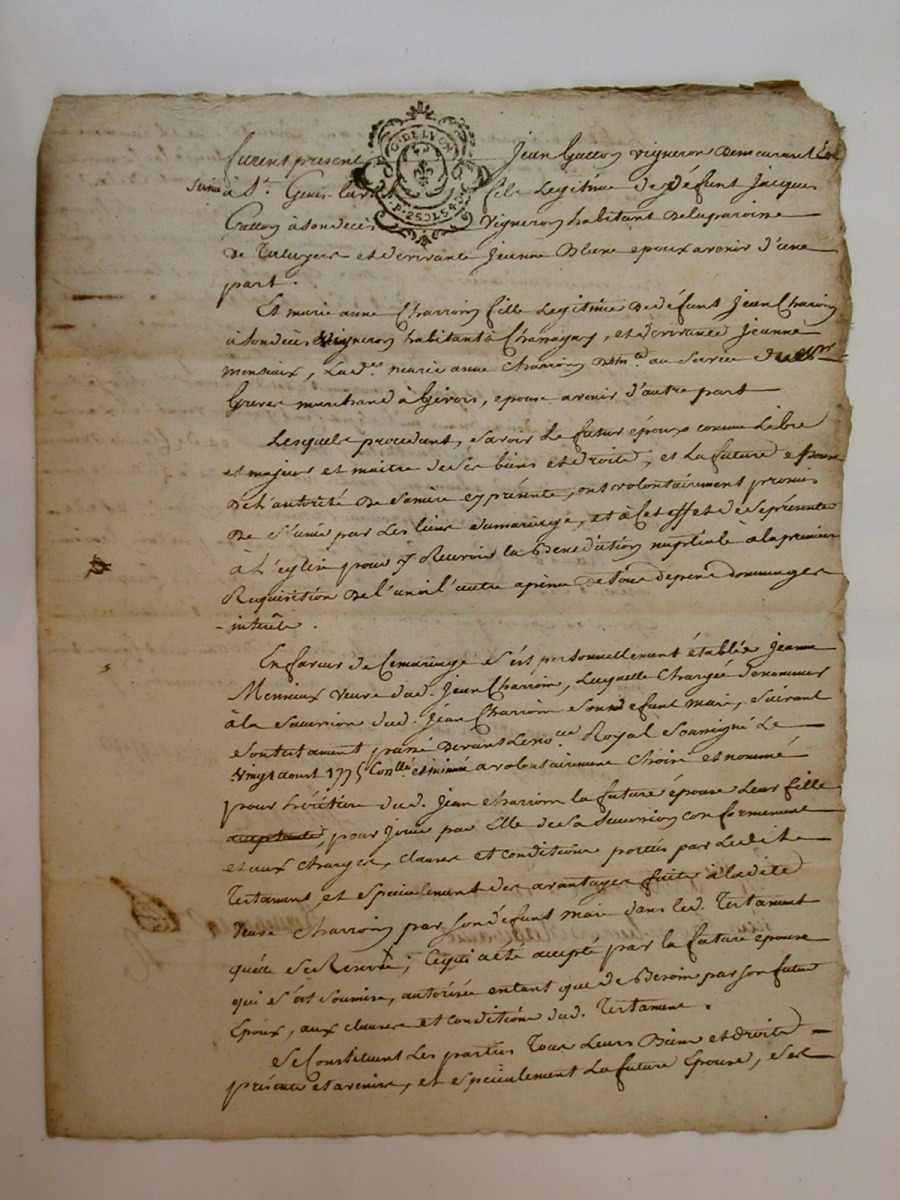 furent present Jean Gatton vigneron demeurant En
service à St. Genis laval fils Legitime de défunt Jacques
Gatton à son decès vigneron habitant de la paroisse
De Taluyers et de vivante Jeanne Blanc epoux avenir d'une
part.
Et marie anne Charvin fille Legitime de défunt Jean Charvin
à son decès vigneron habitant à Chassagny, et de vivante Jeanne
monsieux, La de. marie anne charvin au service de
marchand à Givors, epouse avenir d'autre part
Lesquels procedant, savoir Le futur époux comme Libre
et majeur et maitre de ses biens et droits, et La future epouse
De L'autorité De sa mère cy présente, ont volontairement promis
De s'unir par Les liens du mariage, et à Cet effet de se présenter
à L'eglise pour y Recevoir la Bénédiction nuptiale à la première
Requisition de L'un à L'autre à peine de tous depens dommages
- intérêts.
En faveur de Ce mariage s'est personnellement établie jeanne
Monsieux veuve dud. jean Charvin, Laquelle Chargée de nommer
à la succession dud. jean Charvin son défunt mari, suivant
son testament passé devant Le nore. Royal soussigné Le
vingt aoust 1775 Conllé. et insinué a volontairement Choisi et nommé
pour héritière dud. jean charvin la future épouse leur fille
acceptante, pour jouir par Elle de sa succession conformement
et aux charges, clauses et conditions portés par Ledit
Testament, et specialement des avantages faits à ladite
veuve Charvin par son défunt mari dans led. Testament
qu'elle se Reserve; Ce qui a été accepté par la future epouse
qui s'est soumise, autorisée en tant que de Besoin par son futur
Epoux, aux clauses et conditions dud. Testament.
Se Constituent Les parties Tous Leurs Biens et droits
présents et avenirs, et specialement La future Epouse, ses